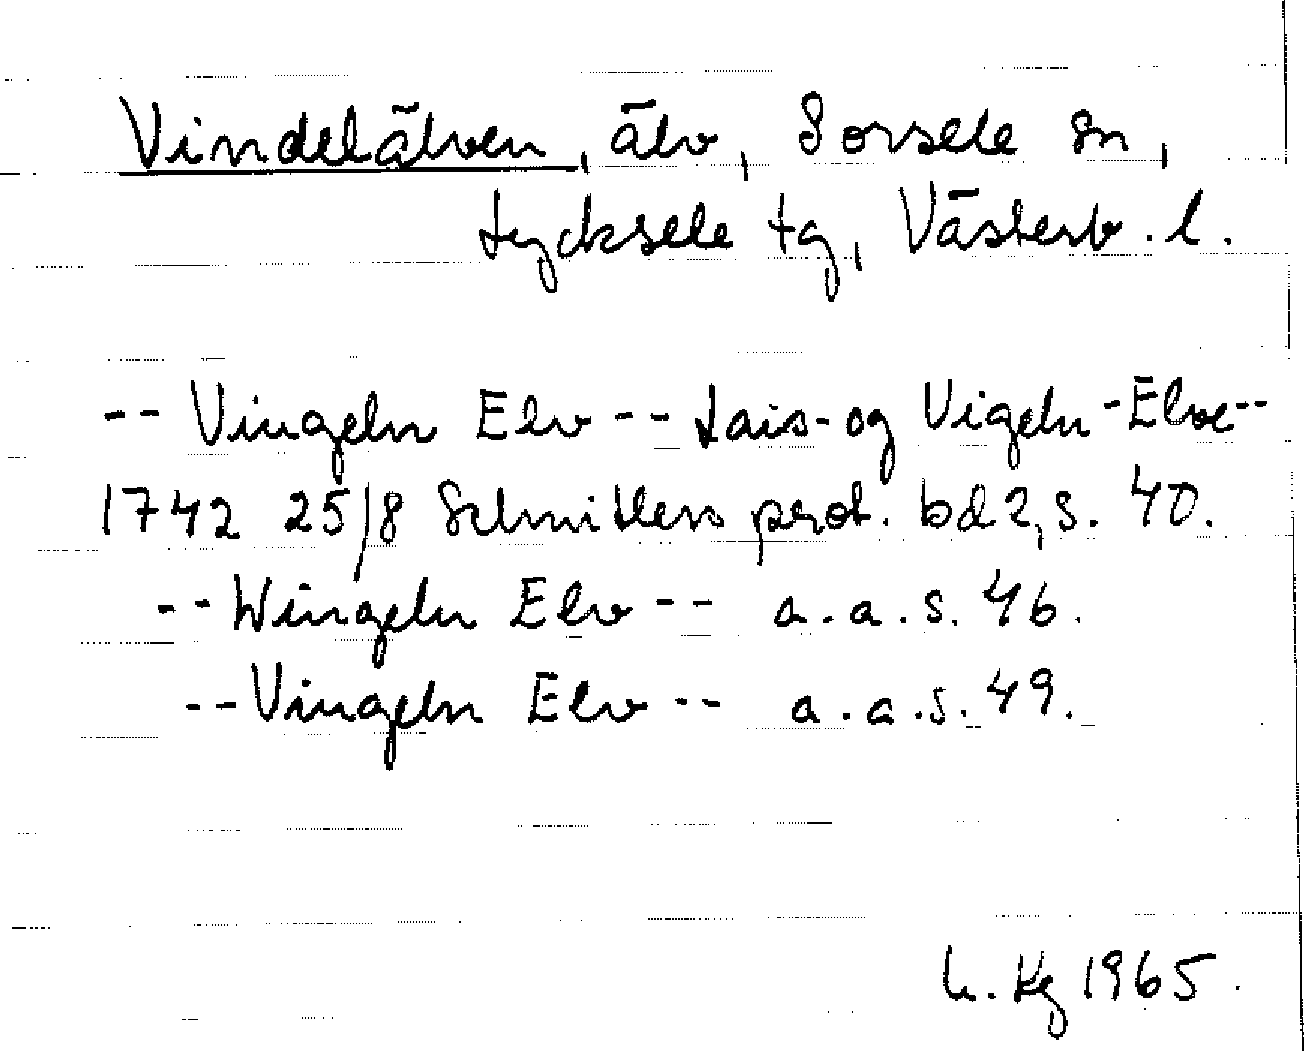 Vindelälven, älv, Sorsele sn,
Lycksele tg, Västerb. l.
-- Vingeln Elv -- Lais- og Vigeln-Elve--
1742 25/8 Schnitlers prot. bd 2, s. 40.
-- Wingeln Elv -- a.a.s. 46.
-- Vingeln Elv -- a.a.s. 49.
Kg 1965.